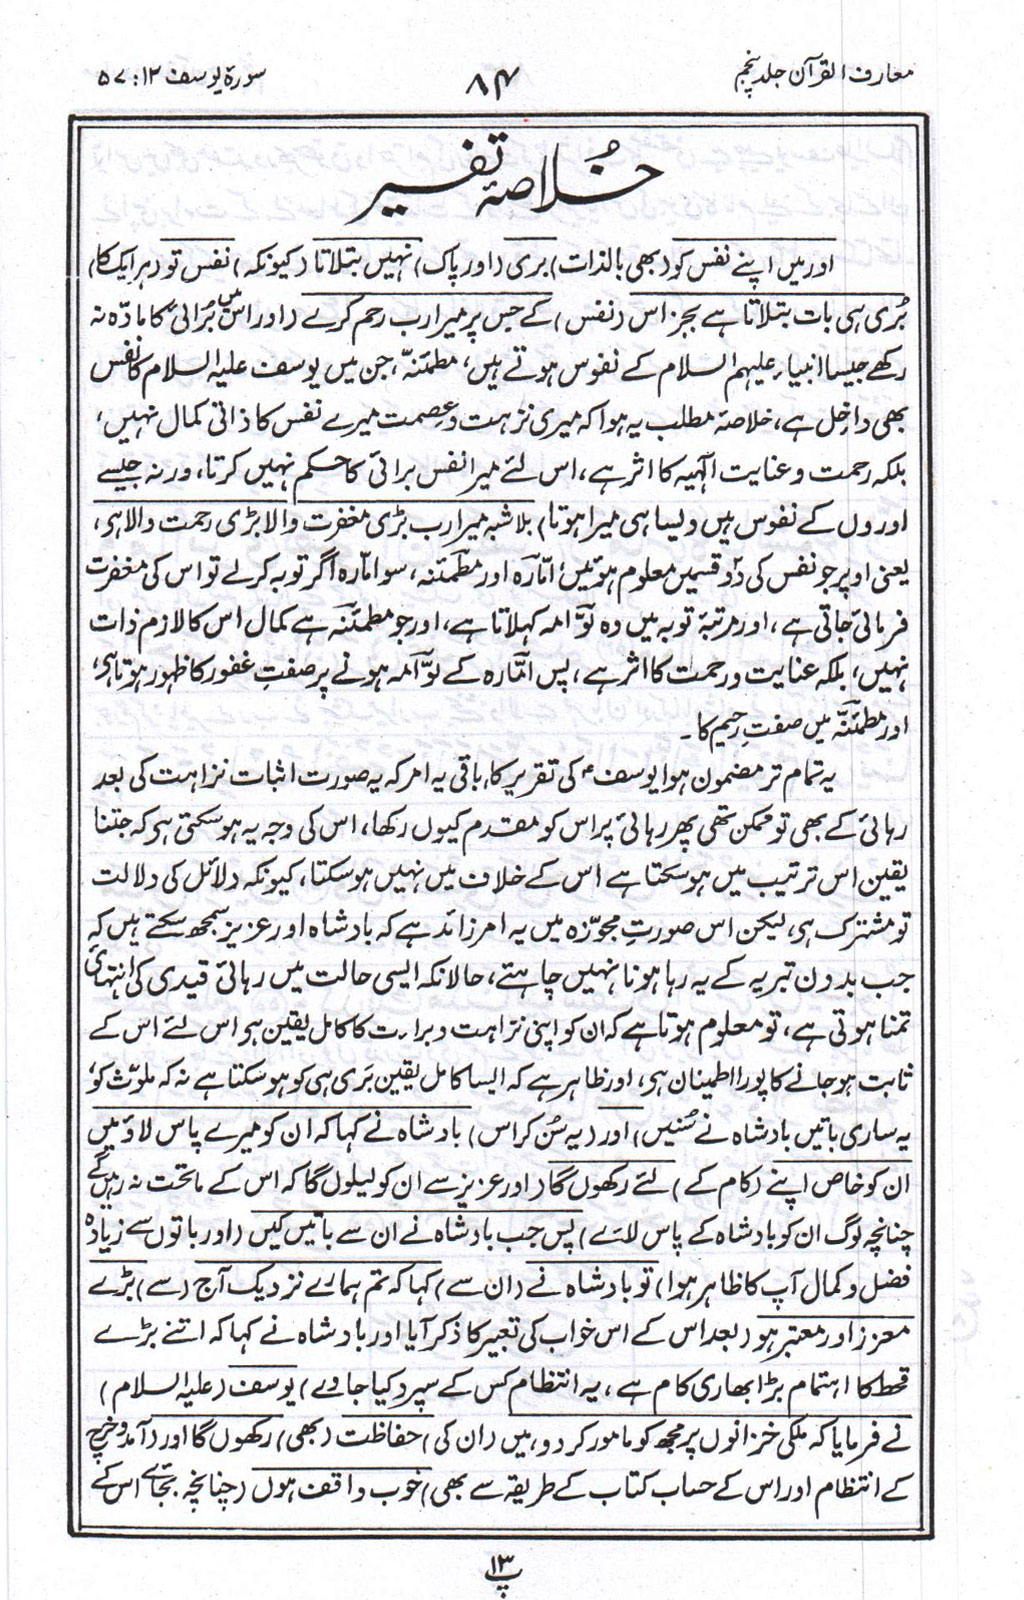 معارف القرآن جلد پنجم
۸۴
سورۃ یوسف ۱۲ : ۵۷
خُلاصۂ تفسیر
اور میں اپنے نفس کو (بھی بالذات) بری (اور پاک) نہیں بتلاتا (کیونکہ) نفس تو (ہر ایک کا)
بُری ہی بات بتلاتا ہے بجز اس (نفس) کے جس پر میرا رب رحم کرے (اور اس میں بُرائی کا مادّہ نہ
رکھے جیسا انبیاء علیہم السلام کے نفوس ہوتے ہیں، مطمئنّہ، جن میں یوسف علیہ السلام کا نفس
بھی داخل ہے، خلاصۂ مطلب یہ ہوا کہ میری نزہت و عصمت میرے نفس کا ذاتی کمال نہیں،
بلکہ رحمت و عنایت الٰہیہ کا اثر ہے، اس لئے میرا نفس برائی کا حکم نہیں کرتا، ورنہ جیسے
اوروں کے نفوس ہیں ویسا ہی میرا ہوتا) بلاشبہ میرا رب بڑی مغفرت والا بڑی رحمت والا ہی،
یعنی اوپر جو نفس کی دو قسمیں معلوم ہوئیں امّارہ اور مطمئنہ، سو امّارہ اگر توبہ کرلے تو اس کی مغفرت
فرمائی جاتی ہے، اور مرتبۂ توبہ میں وہ لوّامہ کہلاتا ہے، اور جو مطمئنّہ ہے کمال اس کا لازم ذات
نہیں، بلکہ عنایت و رحمت کا اثر ہے، پس امّارہ کے لوّامہ ہونے پر صفتِ غفور کا ظہور ہوتا ہی،
اور مطمئنّہ میں صفتِ رحیم کا۔
یہ تمام تر مضمون ہوا یوسفؑ کی تقریر کا، باقی یہ امر کہ یہ صورت اثبات نزاہت کی بعد
رہائی کے بھی تو ممکن تھی پھر رہائی پر اس کو مقدم کیوں رکھا، اس کی وجہ یہ ہو سکتی ہی کہ جتنا
یقین اس ترتیب میں ہوسکتا ہے اس کے خلاف میں نہیں ہوسکتا، کیونکہ دلائل کی دلالت
تو مشترک ہی، لیکن اس صورتِ مجوّزہ میں یہ امر زائد ہے کہ بادشاہ اور عزیز سمجھ سکتے ہیں کہ
جب بدون تبریہ کے یہ رہا ہونا نہیں چاہتے، حالانکہ ایسی حالت میں رہائی قیدی کی انتہائی
تمنا ہوتی ہے، تو معلوم ہوتا ہے کہ ان کو اپنی نزاہت و برارت کا کامل یقین ہی اس لئے اس کے
ثابت ہوجانے کا پورا اطمینان ہی، اور ظاہر ہے کہ ایسا کامل یقین بَری ہی کو ہوسکتا ہے نہ کہ ملوّث کو،
یہ ساری باتیں بادشاہ نے سُنیں) اور (یہ سُن کر اس) بادشاہ نے کہا کہ ان کو میرے پاس لاؤ میں
ان کو خاص اپنے (کام کے) لئے رکھوں گا (اور عزیز سے ان کو لیلوں گا کہ اس کے ماتحت نہ رہیں گے
چنانچہ لوگ ان کو بادشاہ کے پاس لائے) پس جب بادشاہ نے ان سے باتیں کیں (اور باتوں سے زیادہ
فضل و کمال آپ کا ظاہر ہوا) تو بادشاہ نے (ان سے) کہا کہ تم ہمارے نزدیک آج (سے) بڑے
معزز اور معتبر ہو (بعد اس کے اس خواب کی تعبیر کا ذکر آیا اور بادشاہ نے کہا کہ اتنے بڑے
قحط کا اہتمام بڑا بھاری کام ہے، یہ انتظام کس کے سپرد کیا جاوے) یوسف (علیہ السلام)
نے فرمایا کہ ملکی خزانوں پر مجھ کو مامور کردو، میں (ان کی) حفاظت (بھی) رکھوں گا اور (آمد و خرچ
کے انتظام اور اس کے حساب کتاب کے طریقہ سے بھی) خوب واقف ہوں (چنانچہ بجائے اس کے
پ ۱۳